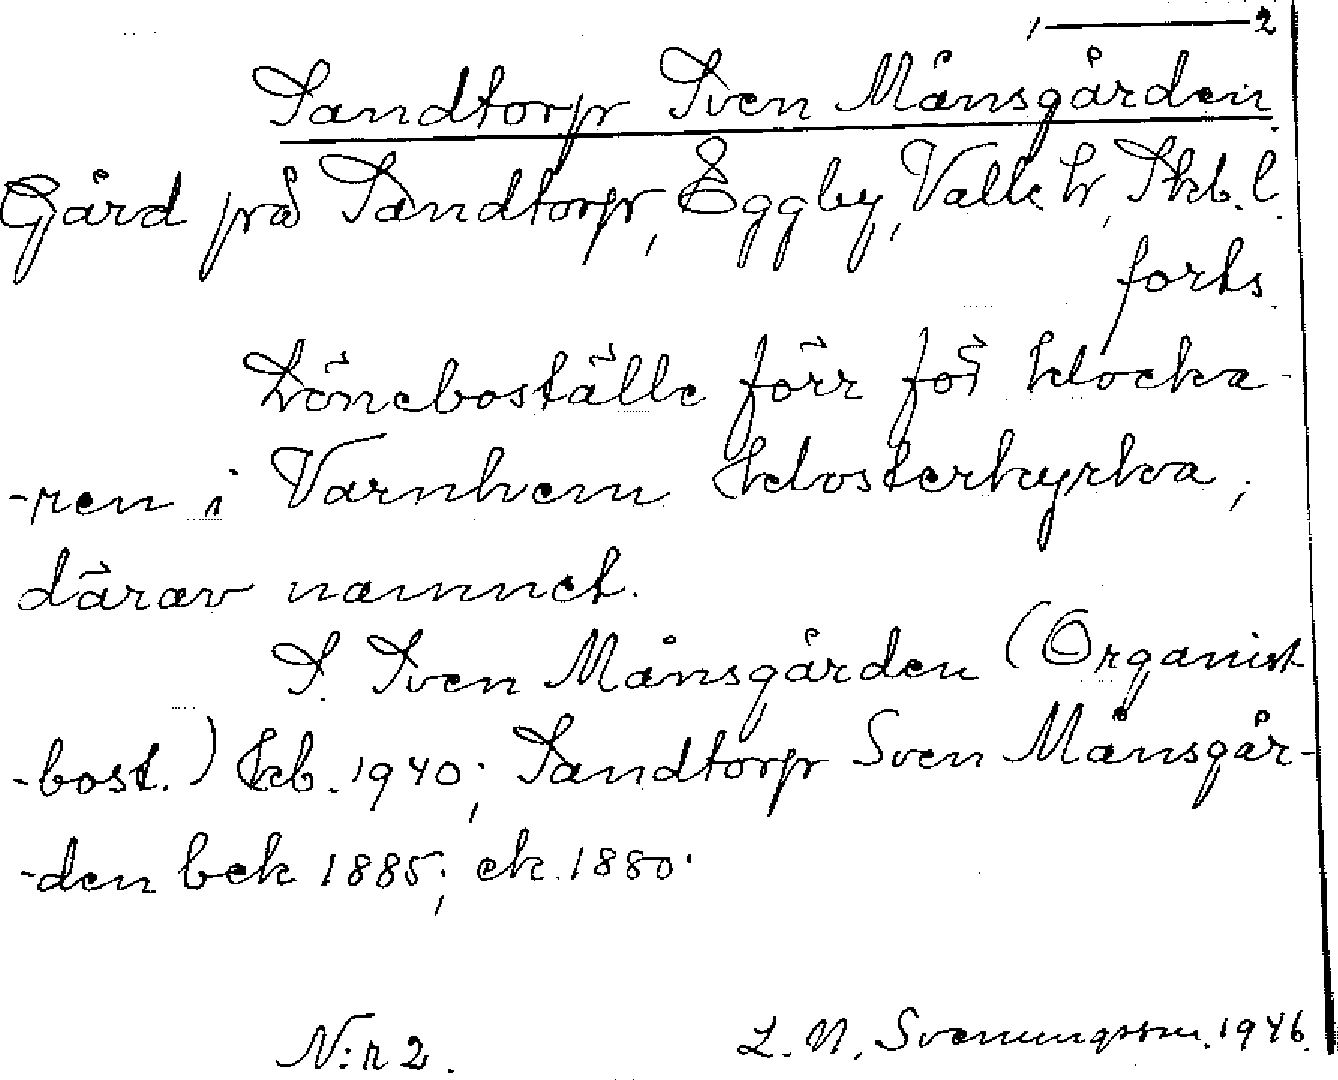 1 — 2
Sandtorp Sven Månsgården
Gård på Sandtorp, Eggby, Valle hr, Skb. l.
forts.
Löneboställe förr för klocka-
-ren i Varnhem klosterkyrka,
därav namnet.
S. Sven Månsgården (Organist-
-bost.) kb. 1940; Sandtorp Sven Månsgår-
-den bek 1885; ek. 1880.
N:r 2.
L. N. Svenungsson. 1946.